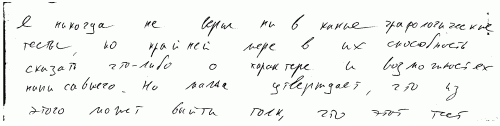 Я никогда не верил ни в какие графологические
тесты, по крайней мере в их способность
сказать что-либо о характере и возможностях
написавшего. Но мама утверждает, что из
этого может выйти толк, что этот тест